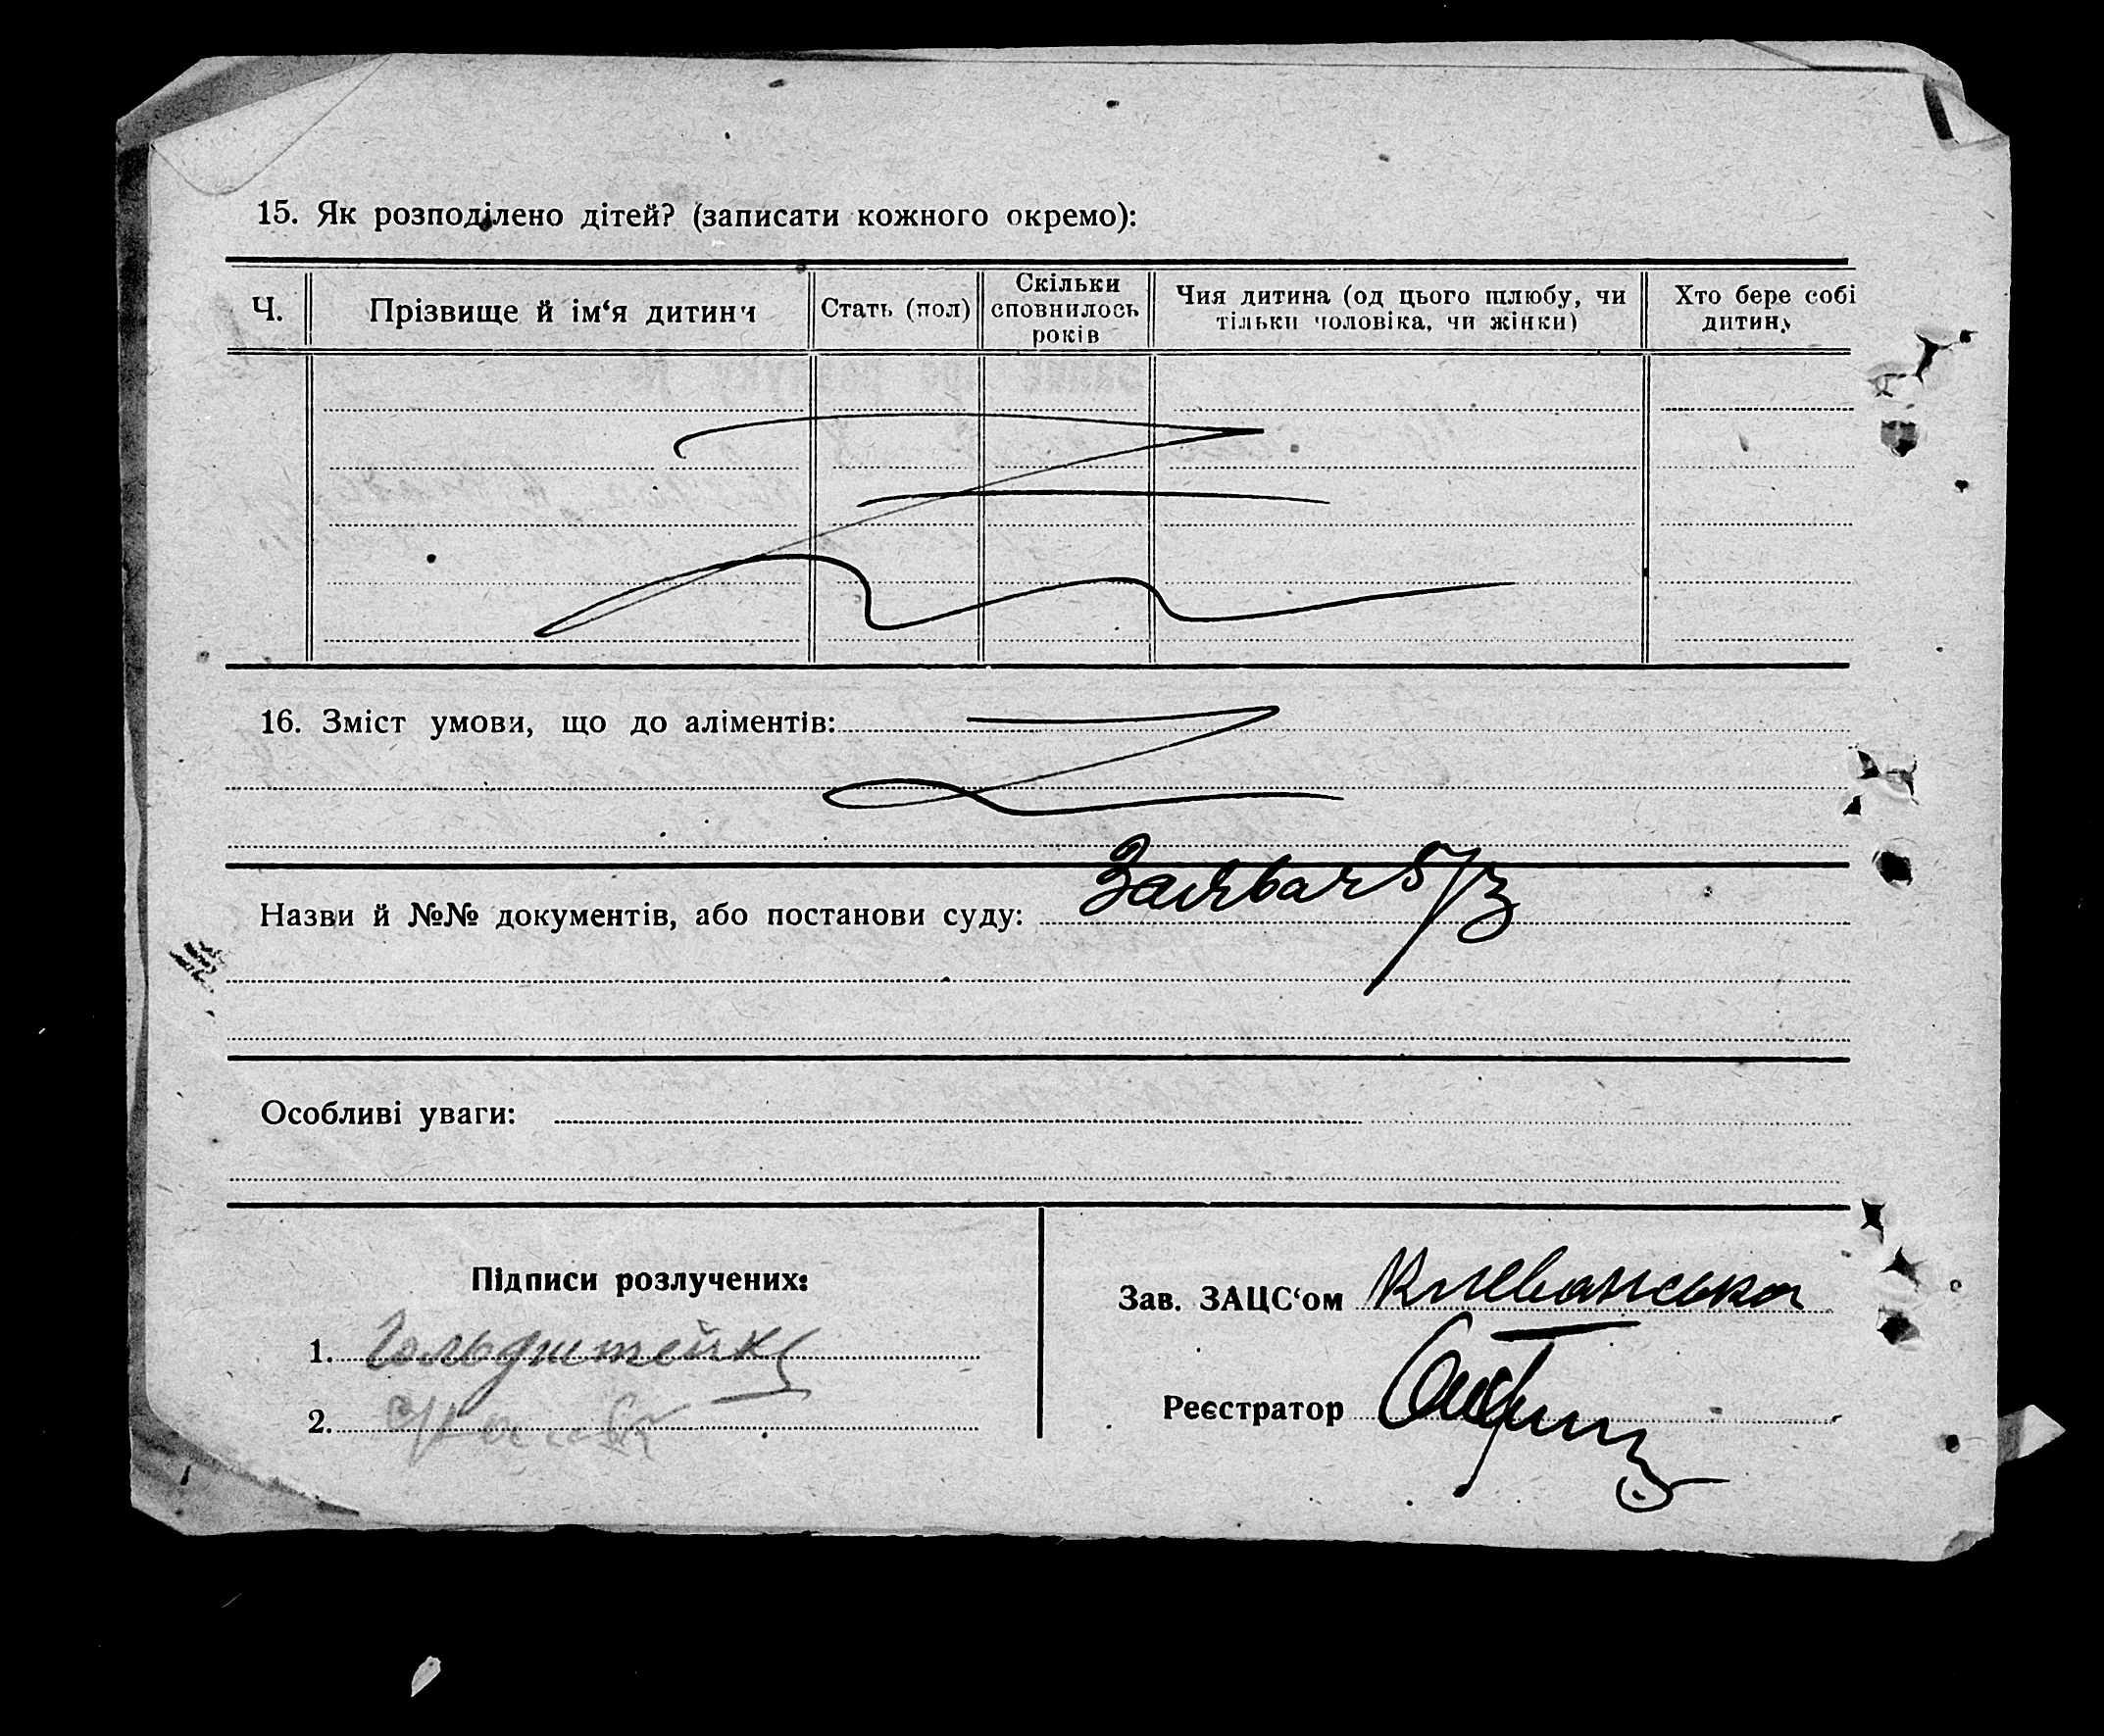 15. Як розподілено дітей? (записати кожного окремо):
Ч.
Прізвище й ім‘я дитини
Стать (пол)
Скільки сповнилось років
Чия дитина (од цього шлюбу, чи тільки чоловіка, чи жінки)
Хто бере собі дитину
16. Зміст умови, що до аліментів:
Назви й №№ документів, або постанови суду: Заява ч 5/з
Особливі уваги:
Підписи розлучених:
1. Гольдштейн
2.
Зав. ЗАЦС‘ом Клеванська
Реєстратор